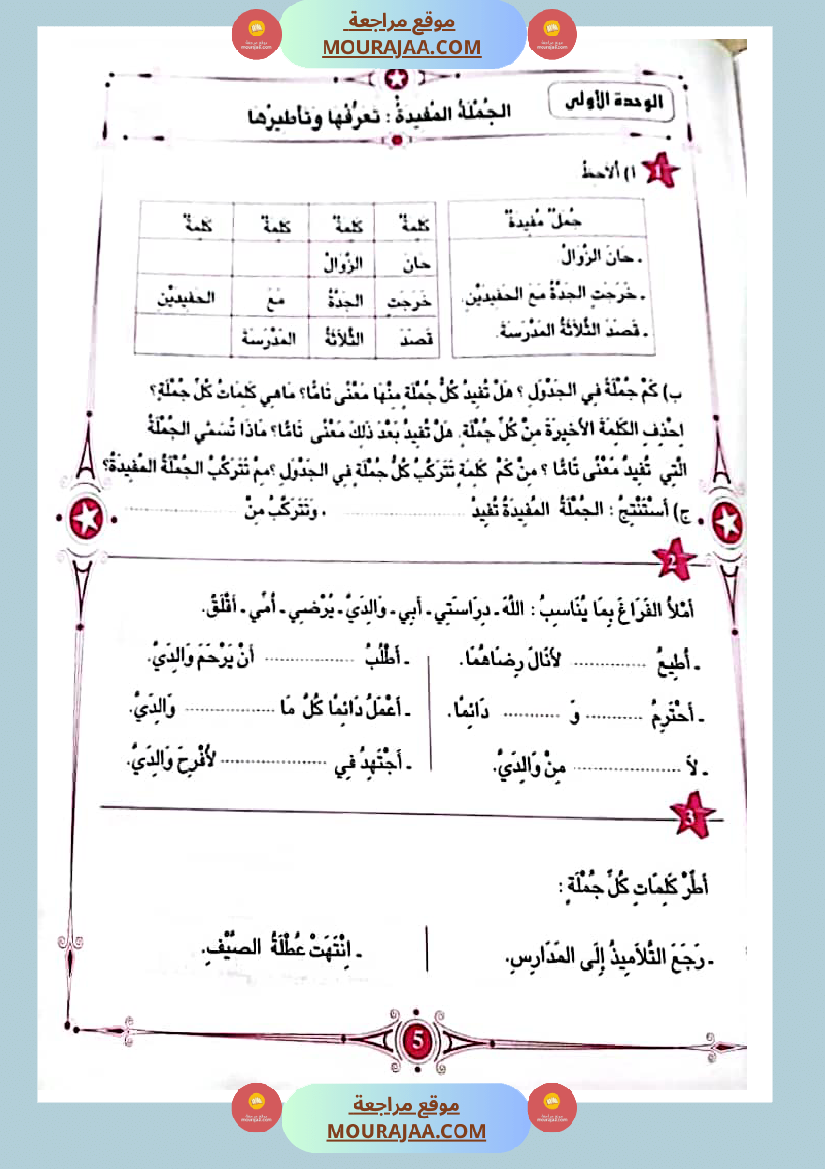 موقع مراجعة
MOURAJAA.COM
الوحدة الأولى
الجُمْلَةُ المُفِيدَةُ : تَعَرُّفُهَا وَتَأطِيرُهَا
1 أ) ألاَحِظُ
جُمَلٌ مُفِيدَةٌ
كَلِمَةٌ كَلِمَةٌ كَلِمَةٌ كَلِمَةٌ
. حَانَ الزَّوَالُ.
حَانَ الزَّوَالُ
. خَرَجَتِ الجَدَّةُ مَعَ الحَفِيدَيْنِ.
خَرَجَتِ الجَدَّةُ مَعَ الحَفِيدَيْنِ
. قَصَدَ الثَّلاَثَةُ المَدْرَسَةَ.
قَصَدَ الثَّلاَثَةُ المَدْرَسَةَ
ب) كَمْ جُمْلَةً فِي الجَدْوَلِ ؟ هَلْ تُفِيدُ كُلُّ جُمْلَةٍ مِنْهَا مَعْنًى تَامًّا؟ مَاهِي كَلِمَاتُ كُلِّ جُمْلَةٍ؟
اِحْذِفِ الكَلِمَةَ الأخِيرَةَ مِنْ كُلِّ جُمْلَةٍ. هَلْ تُفِيدُ بَعْدَ ذَلِكَ مَعْنًى تَامًّا؟ مَاذَا تُسَمَّى الجُمْلَةُ
الَّتِي تُفِيدُ مَعْنًى تَامًّا ؟ مِنْ كَمْ كَلِمَةٍ تَتَرَكَّبُ كُلُّ جُمْلَةٍ فِي الجَدْوَلِ ؟مِمَّ تَتَرَكَّبُ الجُمْلَةُ المُفِيدَةُ؟
ج) أسْتَنْتِجُ : الجُمْلَةُ المُفِيدَةُ تُفِيدُ .................... . وَتَتَرَكَّبُ مِنْ ....................
2
أمْلأُ الفَرَاغَ بِمَا يُنَاسِبُ : اللهَ ـ دِرَاسَتِي ـ أبِي ـ وَالِدَيَّ ـ يُرْضِي ـ أمِّي ـ أقْلَقُ.
ـ أطِيعُ ............ لأنَالَ رِضَاهُمَا.
ـ أطْلُبُ ............ أنْ يَرْحَمَ وَالِدَيَّ.
ـ أحْتَرِمُ ............ وَ ............ دَائِمًا.
ـ أعْمَلُ دَائِمًا كُلَّ مَا ............ وَالِدَيَّ.
ـ لاَ ............ مِنْ وَالِدَيَّ.
ـ أجْتَهِدُ فِي ............ لأُفْرِحَ وَالِدَيَّ.
3
أطِّرْ كَلِمَاتِ كُلِّ جُمْلَةٍ :
ـ رَجَعَ التَّلاَمِيذُ إلَى المَدَارِسِ.
ـ اِنْتَهَتْ عُطْلَةُ الصَّيْفِ.
5
موقع مراجعة
MOURAJAA.COM